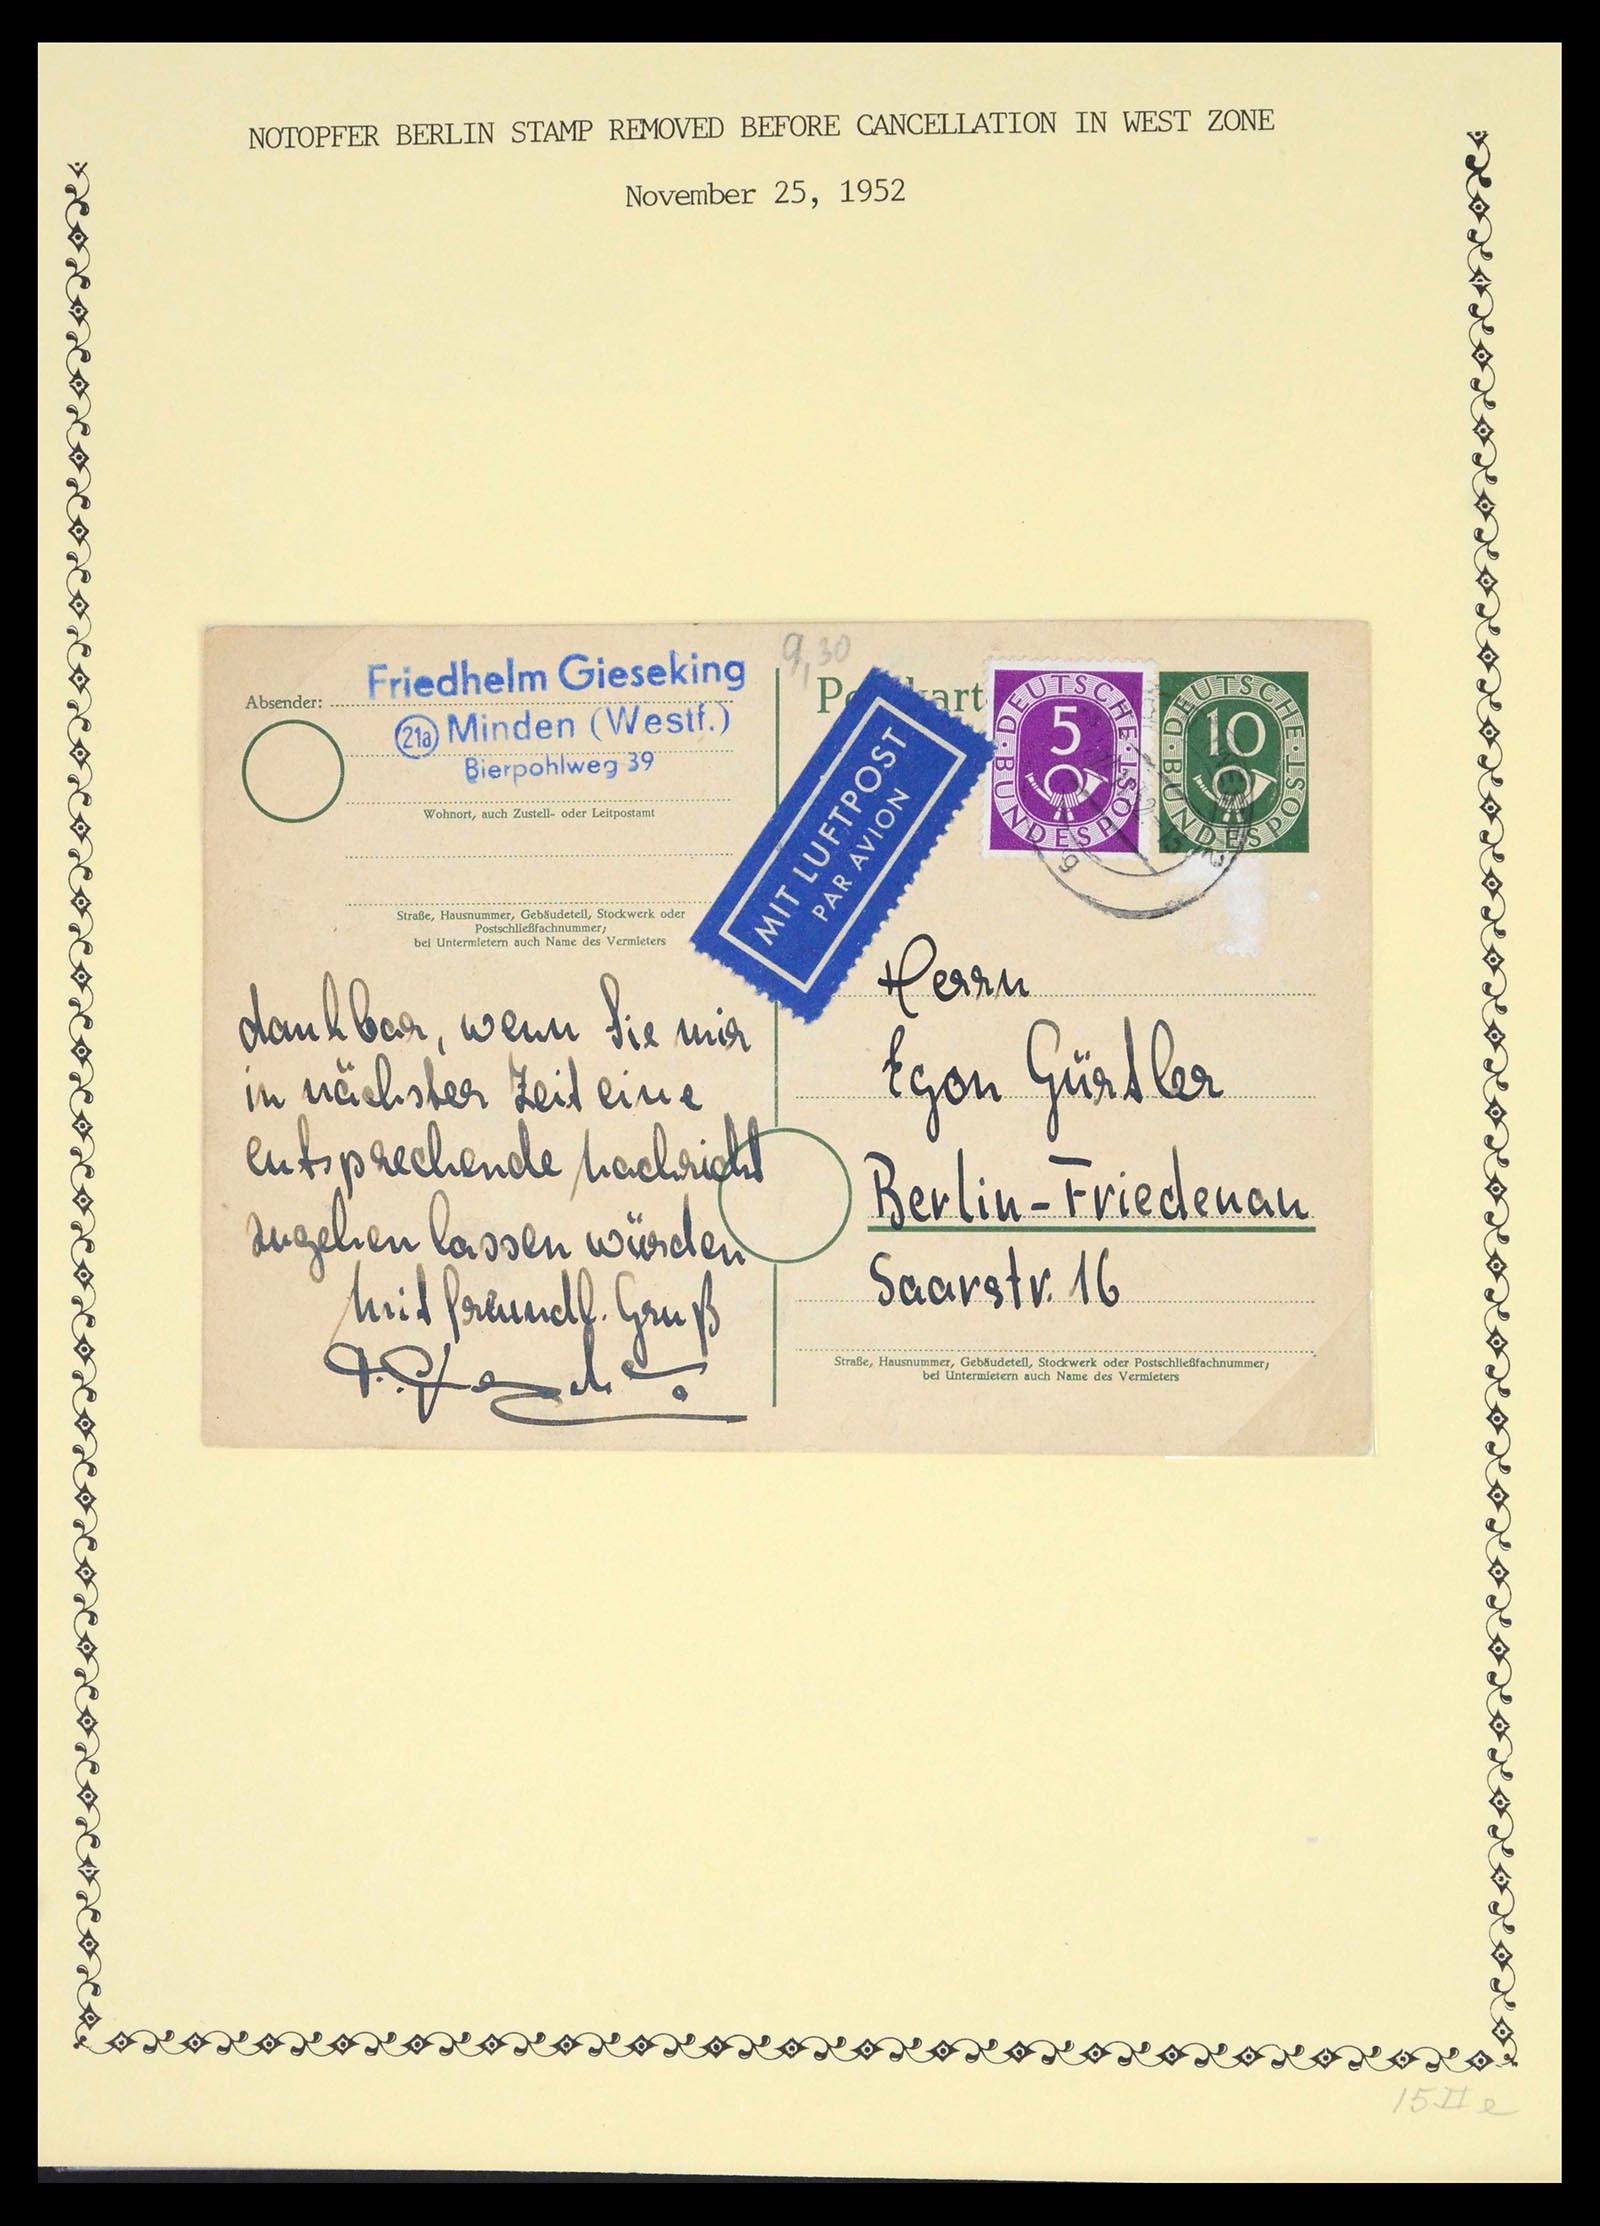 NOTOPFER BERLIN STAMP REMOVED BEFORE CANCELLATION IN WEST ZONE
November 25, 1952
9,30
Absender:
Friedhelm Gieseking
21a Minden (Westf.)
Bierpohlweg 39
Wohnort, auch Zustell- oder Leitpostamt
Straße, Hausnummer, Gebäudeteil, Stockwerk oder
Postschließfachnummer;
bei Untermietern auch Name des Vermieters
dankbar, wenn Sie mir
in nächster Zeit eine
entsprechende Nachricht
zugehen lassen würden
Mit freundl. Gruß
MIT LUFTPOST
PAR AVION
DEUTSCHE
5
BUNDESPOST
DEUTSCHE
10
BUNDESPOST
Herrn
Egon Gürtler
Berlin-Friedenau
Saarstr. 16
Straße, Hausnummer, Gebäudeteil, Stockwerk oder Postschließfachnummer;
bei Untermietern auch Name des Vermieters
15 II e